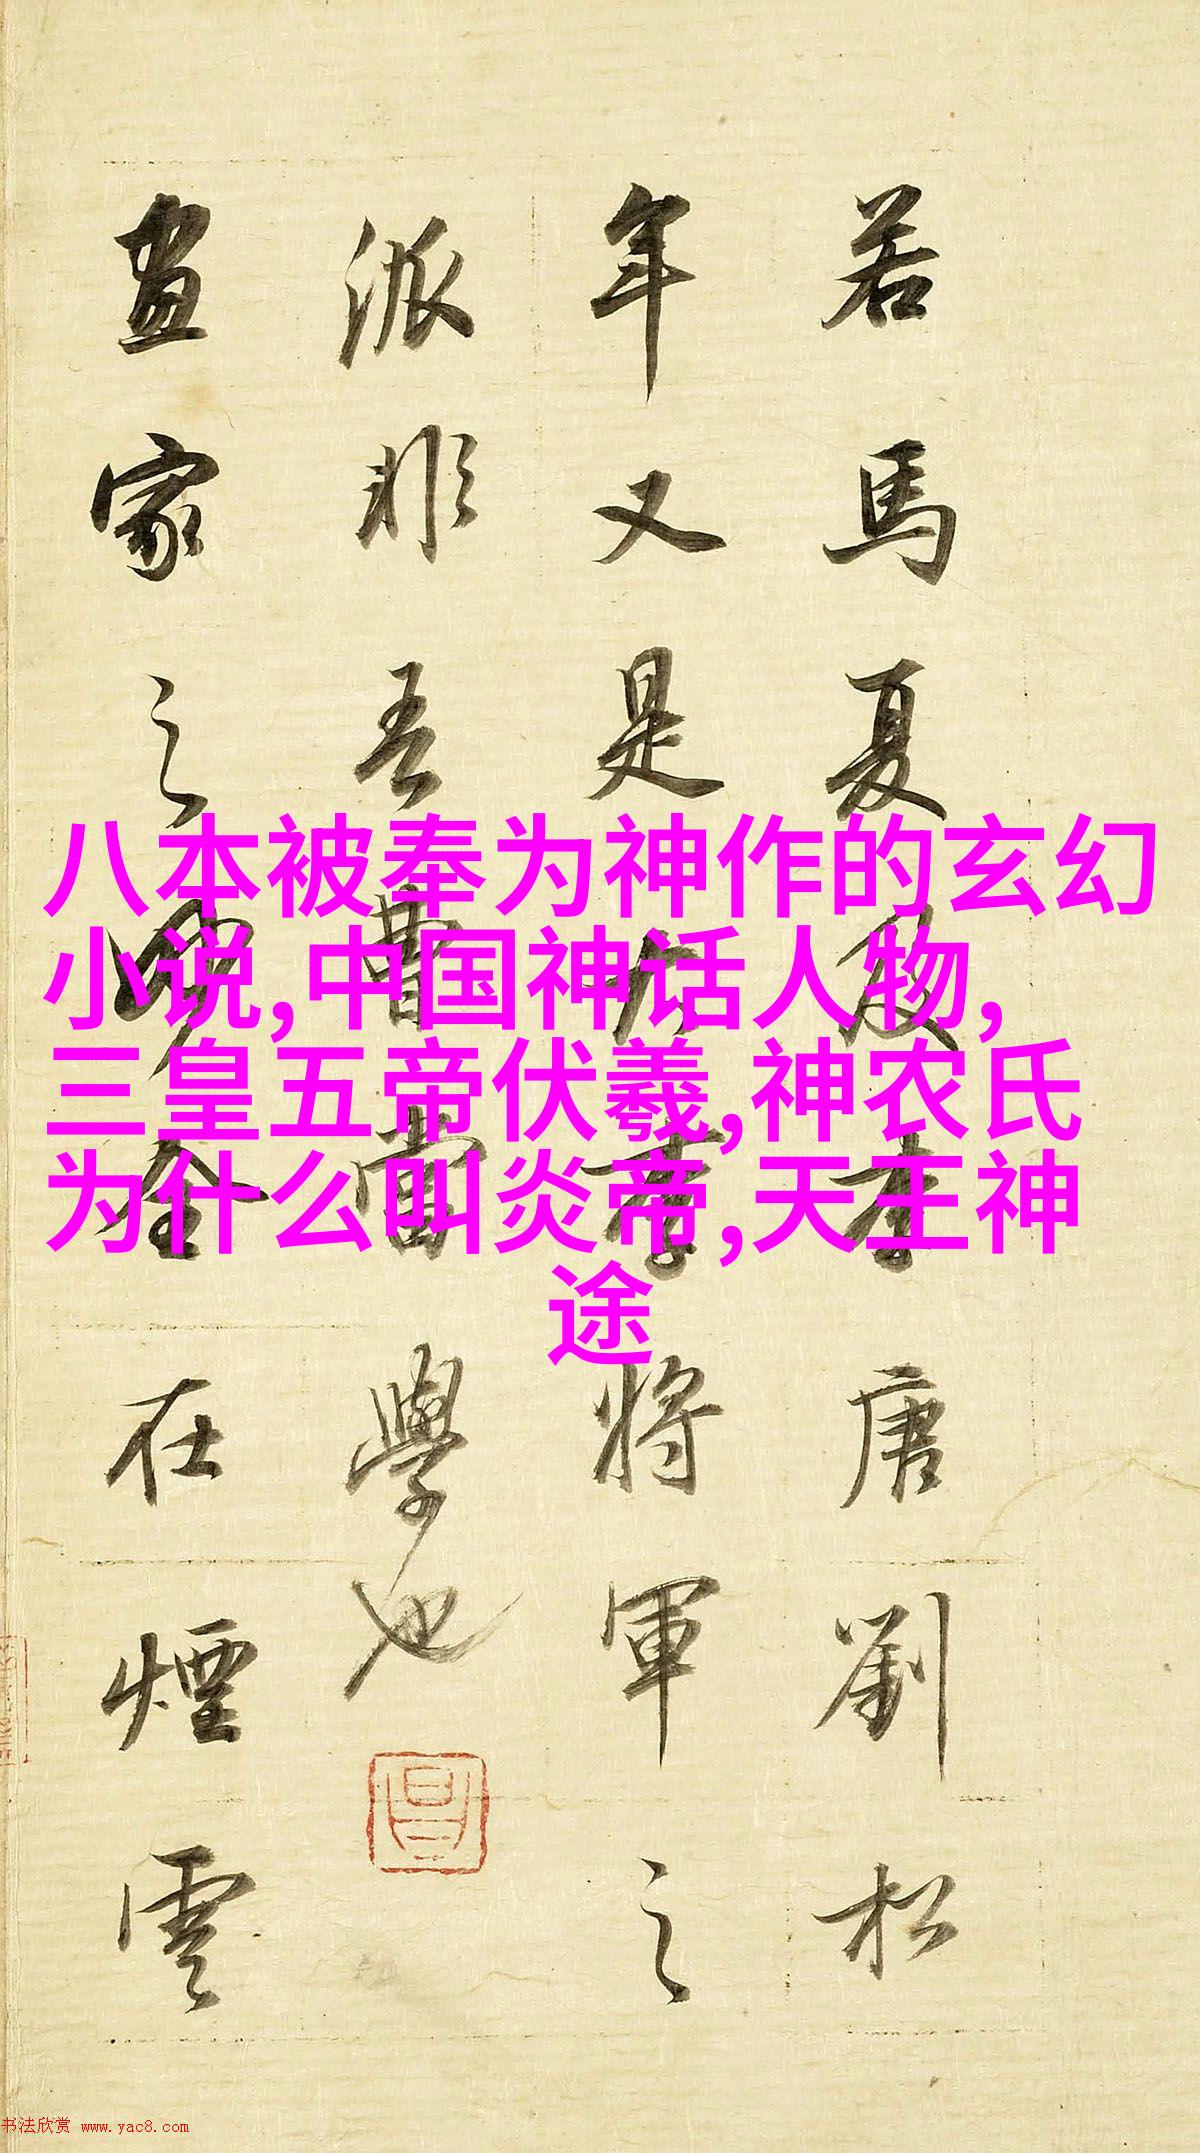 若馬夏及李唐劉松
年又是大李將軍之
派非吾曹當學也
畫家之妙全在煙雲
八本被奉为神作的玄幻
小说,中国神话人物,
三皇五帝伏羲,神农氏
为什么叫炎帝,天王神
途
书法欣赏 www.yac8.com